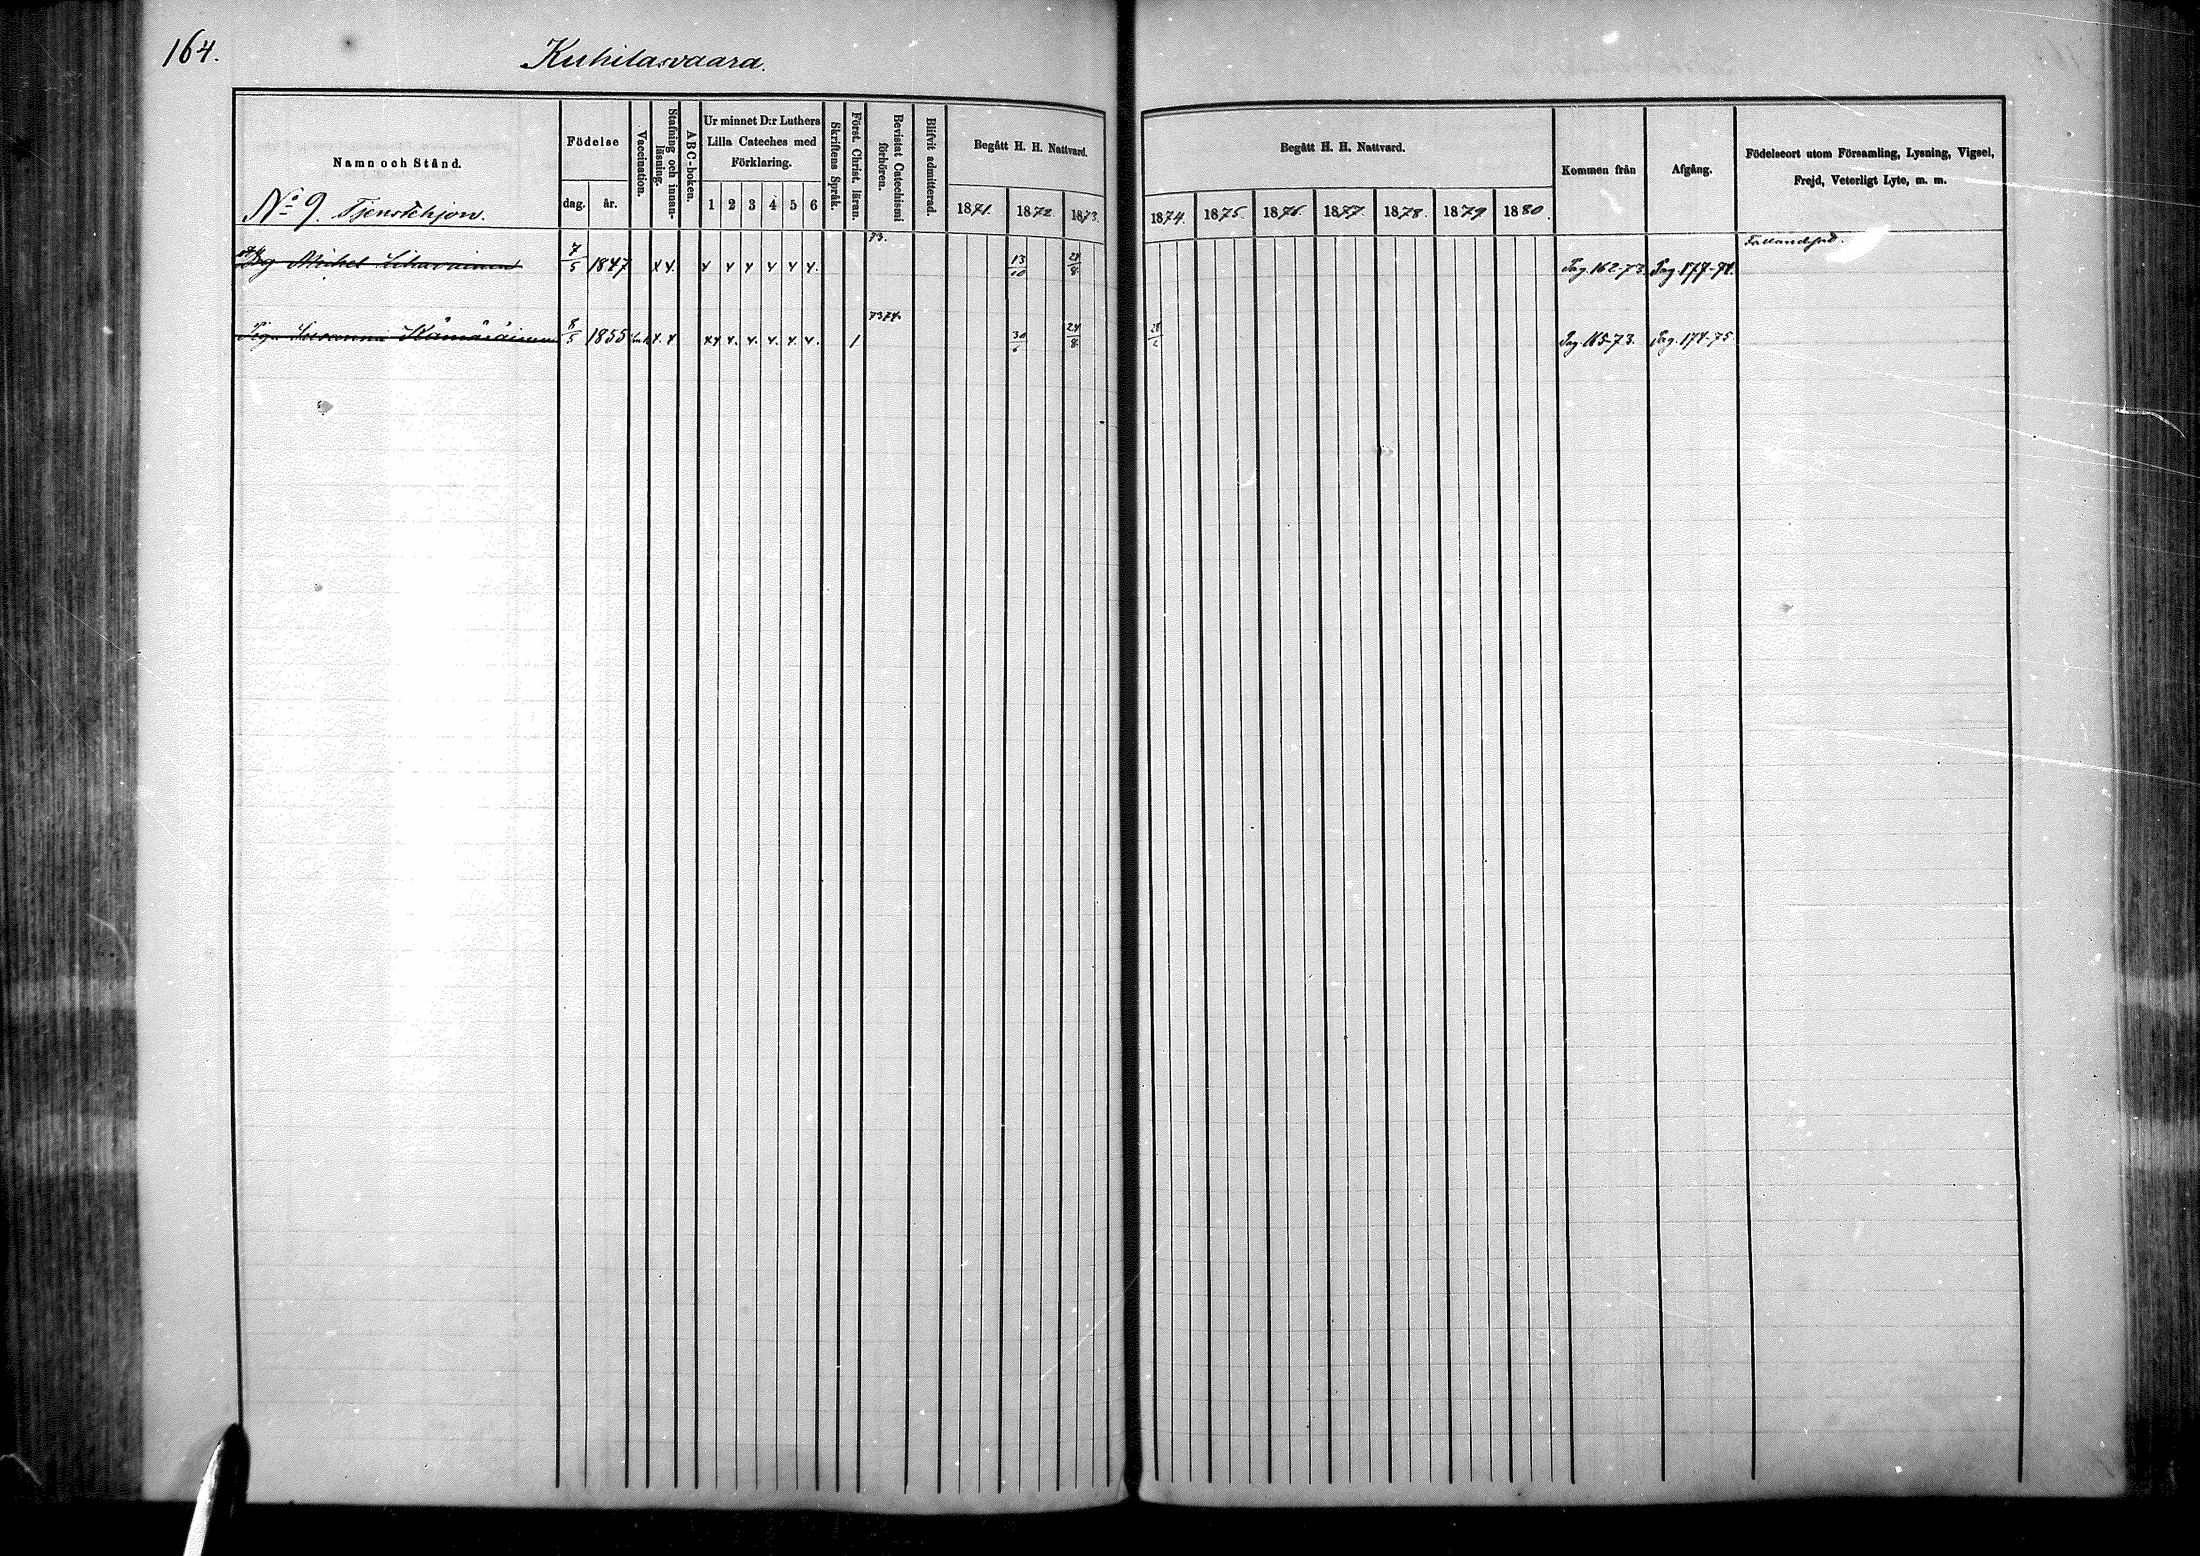 164.
Kuhilasvaara.
Namn och Stånd.
No 9. Tjenstehjon.
Födelse
dag.
år.
Vaccination.
Stafning och innan-
läsning.
ABC-boken.
Ur minnet D:r Luthers
Lilla Cateches med
Förklaring.
1 2 3 4 5 6
Skriftens Språk.
Först. Christ. läran.
Bevistat Catechismi
förhören.
Blifvit admitterad.
Begått H. H. Nattvard.
1871. 1872. 1873.
Begått H. H. Nattvard.
1874. 1875. 1876. 1877. 1878. 1879 1880.
Kommen från
Afgång.
Födelseort utom Församling, Lysning, Vigsel,
Frejd, Veterligt Lyte, m. m.
Michel 7/5 1847 73. 13/10 24/8 Pag. 162-73. Pag. 177-74.
Susanna Kämäräinen 8/5 1855 73 74. 1 30/6 24/8 Pag. 165-73. Pag. 174-75.